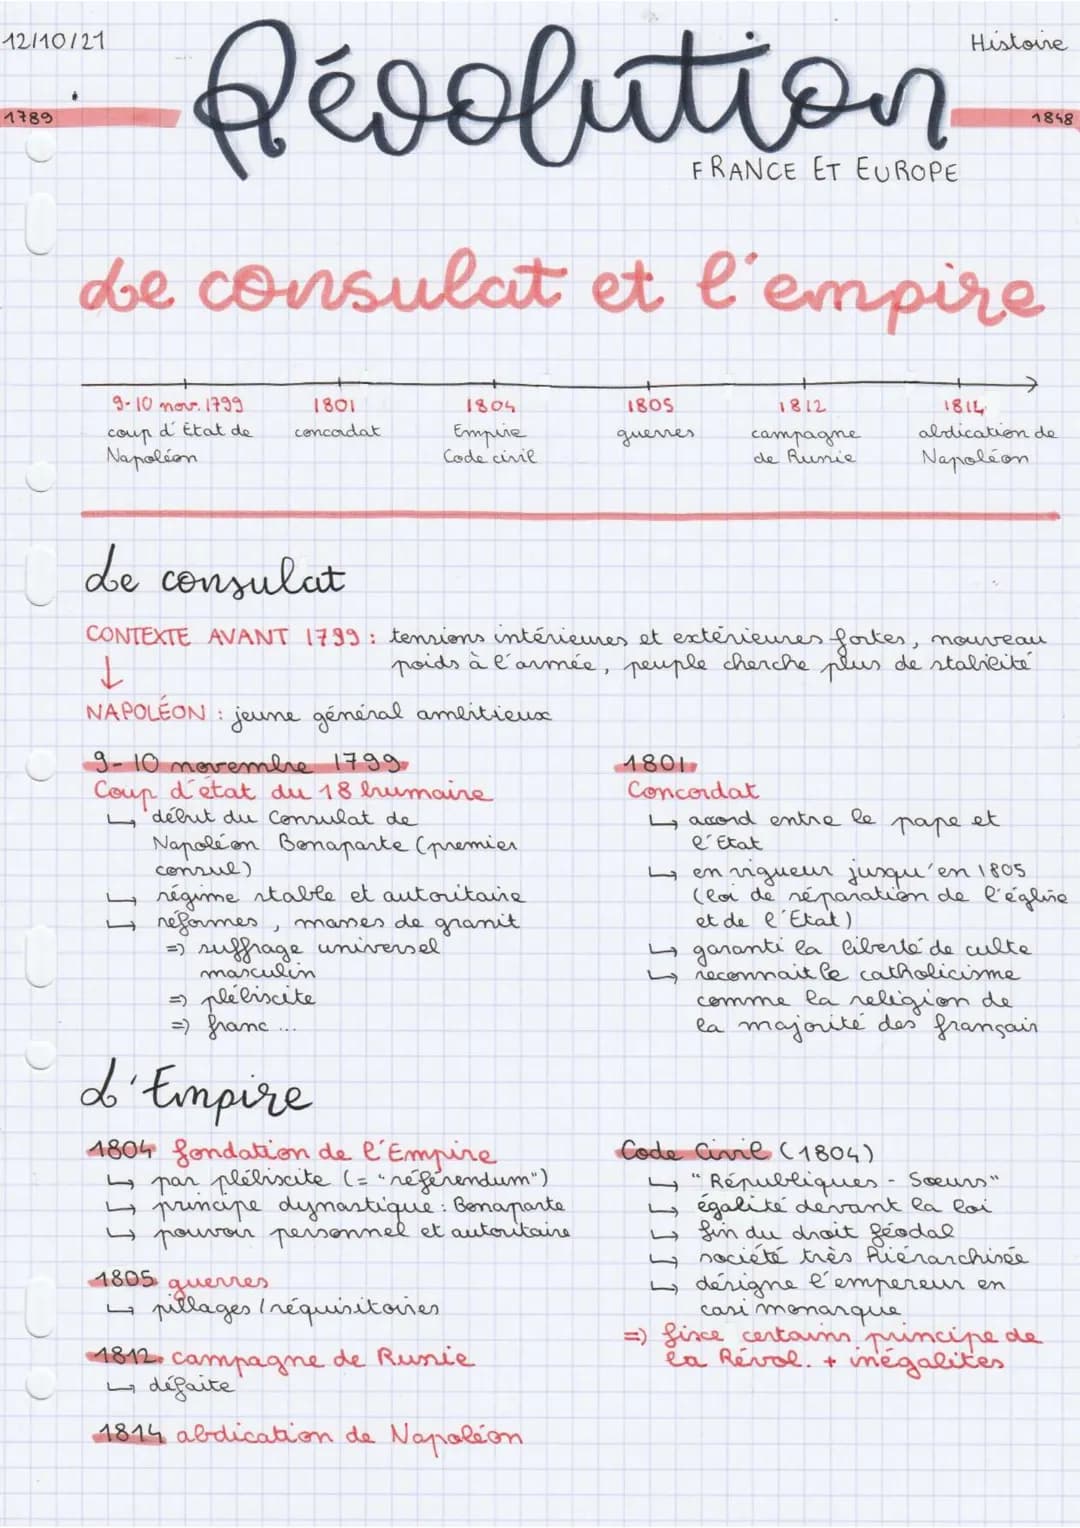 12/10/21
Histoire
1789
Révolution
1848
FRANCE ET EUROPE
Le consulat et l'empire
9-10 nov. 1799
coup d'État de
Napoléon
1801
concordat
1804
Empire
Code civil
1805
guerres
1812
campagne
de Russie
1814
abdication de
Napoléon
Le consulat
CONTEXTE AVANT 1799 : tensions intérieures et extérieures fortes, nouveau
poids à l'armée, peuple cherche plus de stabilité
↓
NAPOLÉON : jeune général ambitieux
9-10 novembre 1799
Coup d'état du 18 brumaire
↳ début du Consulat de
Napoléon Bonaparte (premier
consul)
↳ régime stable et autoritaire
↳ réformes, masses de granit
=> suffrage universel
masculin
=> plébiscite
=> franc ...
1801
Concordat
↳ accord entre le pape et
l'État
↳ en vigueur jusqu'en 1805
(loi de réparation de l'église
et de l'État)
↳ garanti la liberté de culte
↳ reconnait le catholicisme
comme la religion de
la majorité des français
L'Empire
1804 fondation de l'Empire
↳ par plébiscite (= "référendum")
↳ principe dynastique : Bonaparte
↳ pouvoir personnel et autoritaire
1805 guerres
↳ pillages / réquisitoires
1812 campagne de Russie
↳ défaite
1814 abdication de Napoléon
Code Civil (1804)
↳ "Républiques - Sœurs"
↳ égalité devant la loi
↳ fin du droit féodal
↳ société très hiérarchisée
↳ désigne l'empereur en
casi monarque
=> fixe certains principe de
la Révol. + inégalités